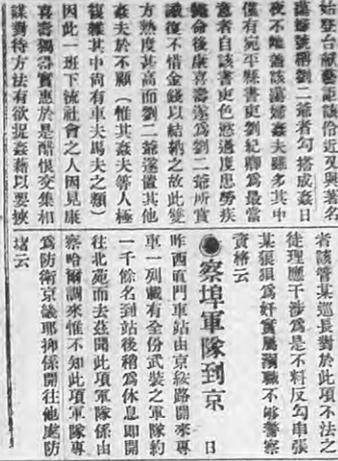 始登台献藝詎該伶近又與著名
蕩婦號稱劉二爺者勾搭成姦日
夜不離蓋該蕩婦姦夫雖多其中
僅有宛平縣書吏劉紀聊為最當
意者自該書吏色慾過度患勞疾
斃命後康喜壽遂為劉二爺所賞
識復不惜金錢以結納之故此雙
方熟度甚高而劉二爺遂置其他
姦夫於不顧（惟其姦夫等人極
複雜其中尚有車夫馬夫之類）
因此一班下流社會之人因見康
喜壽獨得實惠於是酣恨交集相
謀對待方法有欲捉姦藉以要挾
者該管某巡長對於此項不法之
徒理應干涉為是不料反勾串張
某狼狽為奸實屬溺職不够警察
資格云
●察埠軍隊到京 日
昨西直門車站由京綏路開來專
車一列載有全份武装之軍隊約
一千餘名到站後稍為休息即開
往北苑而去茲聞此項軍隊係由
察哈爾調來惟不知此項軍隊專
為防衛京議耶抑係開往他處防
堵云